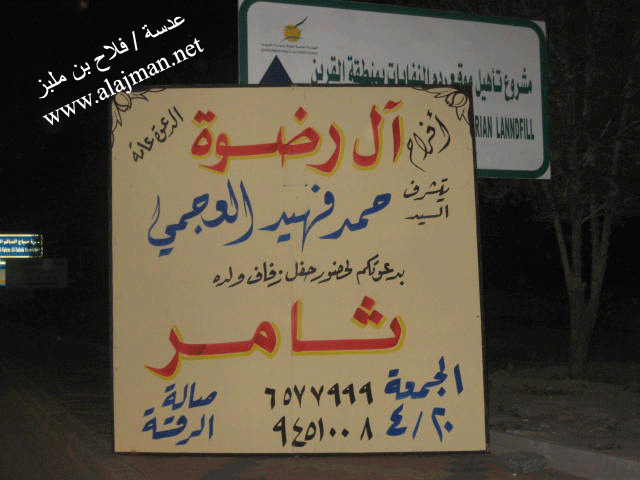 عدسة / فلاح بن ملبز
www.alajman.net
مشروع تأهيل موقع ردم النفايات بمنطقة القرين
RIAN LANNDFILL
الدعوة عامة
أفراح
آل رضوة
يتشرف
السيد
حمد فهيد العجمي
بدعوتكم لحضور حفل زفاف ولده
ثامر
الجمعة ٦٥٧٧٩٩٩ صالة
٤/٢٠ ٩٤٥١٠٠٨ الرقة